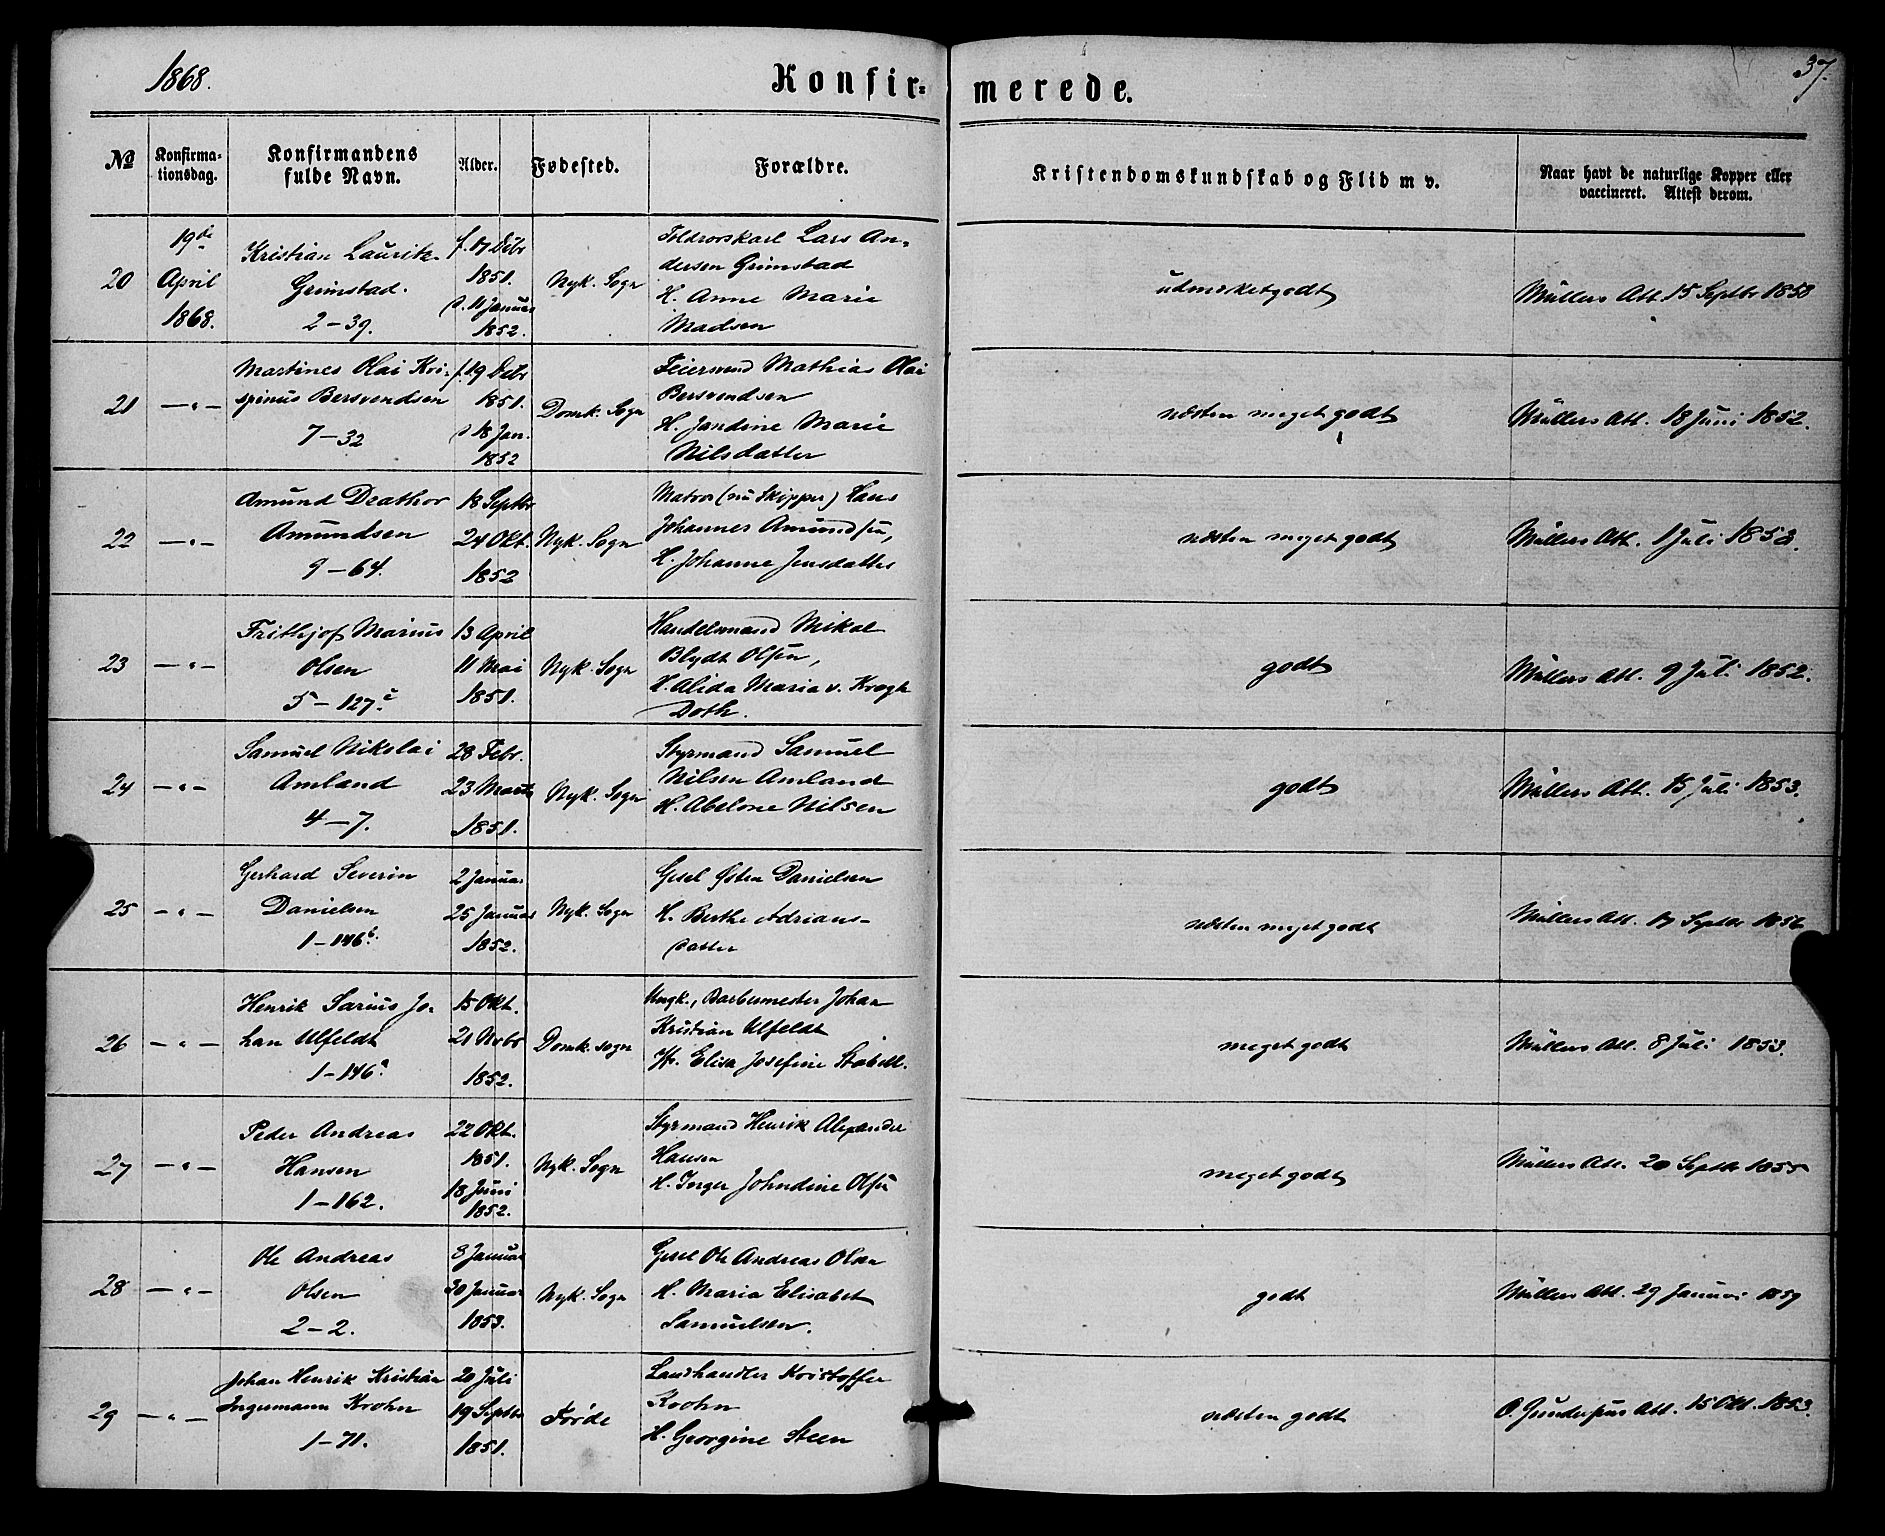 1868.
Konfir-
merede.
37.
No
Konfirma-
tionsdag.
Konfirmandens
fulde Navn.
Alder.
Fødested.
Forældre.
Kristendomskundskab og Flid m v.
Naar havt de naturlige Kopper eller
vaccineret. Attest derom.
20
19de
April
1868.
Kristian Lauritz
Grimstad.
2-39.
f. 17 Debr
1851.
d. 11 Januar
1852.
Nyk. Sogn
Toldrorskarl Lars An-
dersen Grimstad
H. Anne Marie
Madsen
udmerket godt
Müllers Att. 15 Septbr 1858
21
-"-
Martines Olai Kri-
spinus Bersvendsen
7-32
f. 19 Debr
1851.
d 18 Jan.
1852
Domk. Sogn
Feiersvend Mathias Olai
Bersvendsen
H. Jandine Marie
Nilsdatter
næsten meget godt
Müllers Att. 18 Juni 1852.
22
-"-
Amund
Amundsen
9-64.
18 Septbr
24 Okt.
1852
Nyk. Sogn
Matros (nu Skipper) Lars
Johannes Amundsen,
H. Johanne Jensdatter
næsten meget godt
Müllers Att. 1 Juli 1853.
23
-"-
Frithjof Marius
Olsen
5-127c
13 April
11 Mai
1851.
Nyk. Sogn
Handelsmand Mikal
Blydt Olsen,
H. Alida Maria v. Krogh
Doth.
godt
Müllers Att. 9 Juli 1852.
24
-"-
Samuel Nikolai
Amland
4-7.
28 Febr.
23 Marts
1851.
Nyk. Sogn
Styrmand Samuel
Nilsen Amland
H. Abelone Nilsen
godt
Müllers Att. 15 Juli 1853.
25
-"-
Gerhard Severin
Danielsen
1-146b.
2 Januar
25 Januar
1852.
Nyk. Sogn
Gesel Østen Danielsen
H. Berthe Adrians-
datter
næsten meget godt
Müllers Att. 17 Septbr 1856
26
-"-
Henrik Sarius Jo-
han Ulfeldt
1-146a
15 Okt.
21 Novbr
1852.
Domk. sogn
Ungk., Barbermester Johan
Kristian Ulfeldt
Elisa Josefine Stabell.
meget godt
Müllers Att. 8 Juli 1853.
27
-"-
Peder Andreas
Hansen
1-162.
22 Okt.
1851.
18 Juni
1852.
Nyk. Sogn
Styrmand Henrik Alexander
Hansen
H. Inger Johndine Olsen
meget godt
Müllers Att. 20 Septbr 1855
28
-"-
Ole Andreas
Olsen
2-2.
8 Januar
30 Januar
1853.
Nyk. Sogn
Gesel Ole Andreas Olsen
H. Maria Elisabet
Samuelsen.
godt
Müllers Att. 29 Januar 1859
29
-"-
Johan Henrik Kristian
Ingermann Krohn
1-71.
20 Juli
19 Septbr
1851.
Førde
Landhandler Kristoffer
Krohn
H. Georgine Steen
næsten godt
O. Gundersens Att. 15 Okt. 1853.